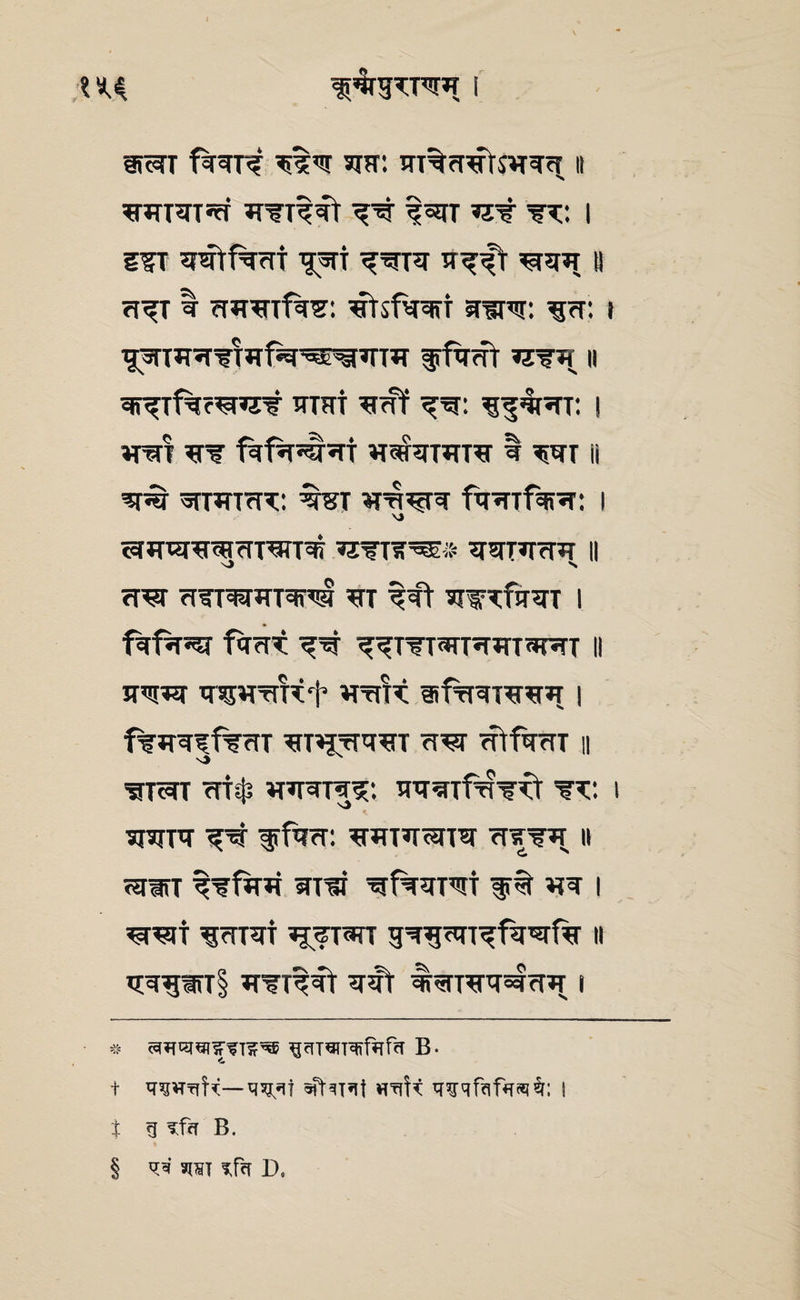 १५६ कूर्म्मपुराणम् ।
कृत्वा विवादं रुद्रेण शप्तः प्राचेतसोऽभवत् ॥
समायान्तं महादेवो दक्षं देव्या गृहं हरः ।
दृष्ट्वा यथोचितां पूजां दक्षाय प्रददौ स्वयम् ॥
तदा वै तमसाविष्टः सोऽधिकां ब्रह्मणः सुतः ।
पूजामनर्हामन्विच्छञ्जगाम कुपितो गृहम् ॥
कदाचित्स्वगृहं प्राप्तां सतीं दक्षः सुदुर्म्मनाः ।
भर्त्रा सह विनिन्द्यैनां भर्त्सयामास वै रुषा ॥
अन्ये जामातरः श्रेष्ठा भर्त्तुस्तव पिनाकिनः ।
त्वमप्यसत्सुतास्माकं गृहाद्गच्छ* यथागतम् ॥
तस्य तद्वाक्यमाकर्ण्य सा देवी शङ्करप्रिया ।
विनिन्द्य पितरं दक्षं ददाहात्मानमात्मना ॥
प्रणम्य पशुभर्त्तारं† भर्त्तारं कृत्तिवाससम् ।
हिमवद्दुहिता साभूत्तपसा तस्य तोषिता ॥
ज्ञात्वा तां‡ भगवान्रुद्रः प्रपन्नार्त्तिहरो हरः ।
शशाप दक्षं कुपितः समागत्याथ तद्गृहम् ॥
त्यक्त्वा देहमिमं ब्राह्मं क्षत्रियाणां कुले भव ।
स्वस्यां सुतायां मूढात्मा पुत्रमुत्पादयिष्यसि ॥
एवमुक्त्वा§ महादेवो ययौ कैलासपर्व्वतम् ।
* त्वमप्यसद्गृहाद्गच्छ सुतास्माकमिति B.
† पशुभर्त्तारं—पशूनां जीवानां भर्त्तारं पशुपतिमित्यर्थः ।
‡ तु इति B.
§ एवं शप्त्वा इति D.